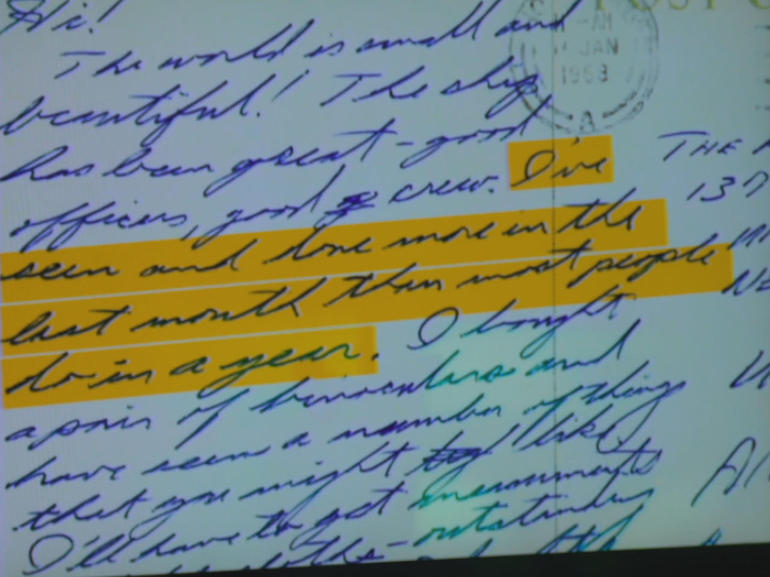 Hi!
The world is small and
beautiful! The ship
has been great - good
officers, good crew. I've
seen and done more in the
last month than most people
do in a year. I bought
a pair of binoculars and
have seen a number of things
that you might like.
I'll have to get measurements
- outstanding
POST
AM
JAN
1968
A
THE
137